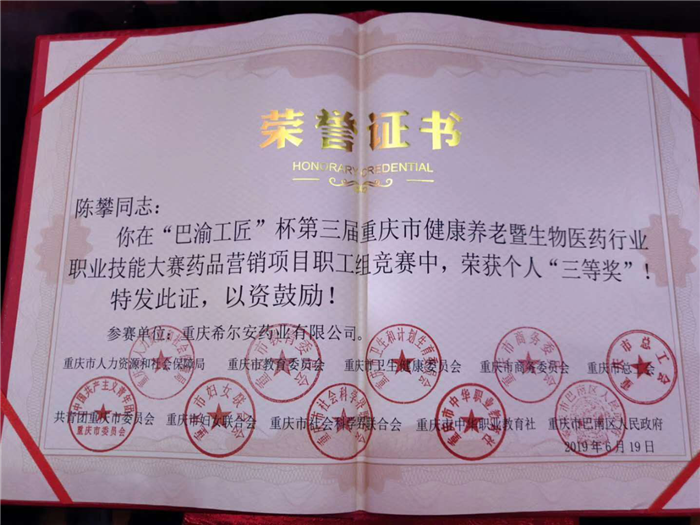 荣誉证书
HONORARY CREDENTIAL
陈攀同志：
你在“巴渝工匠”杯第三届重庆市健康养老暨生物医药行业
职业技能大赛药品营销项目职工组竞赛中，荣获个人“三等奖”！
特发此证，以资鼓励！
参赛单位：重庆希尔安药业有限公司。
重庆市人力资源和社会保障局 重庆市教育委员会 重庆市卫生健康委员会 重庆市商务委员会 重庆市总工会
共青团重庆市委员会 重庆市妇女联合会 重庆市社会科学界联合会 重庆市中华职业教育社 重庆市巴南区人民政府
2019年6月19日